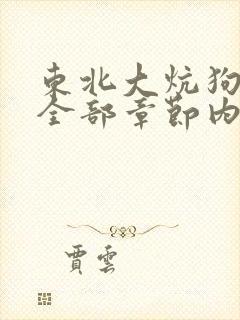 東北大炕狗
全部章節內
賈雲